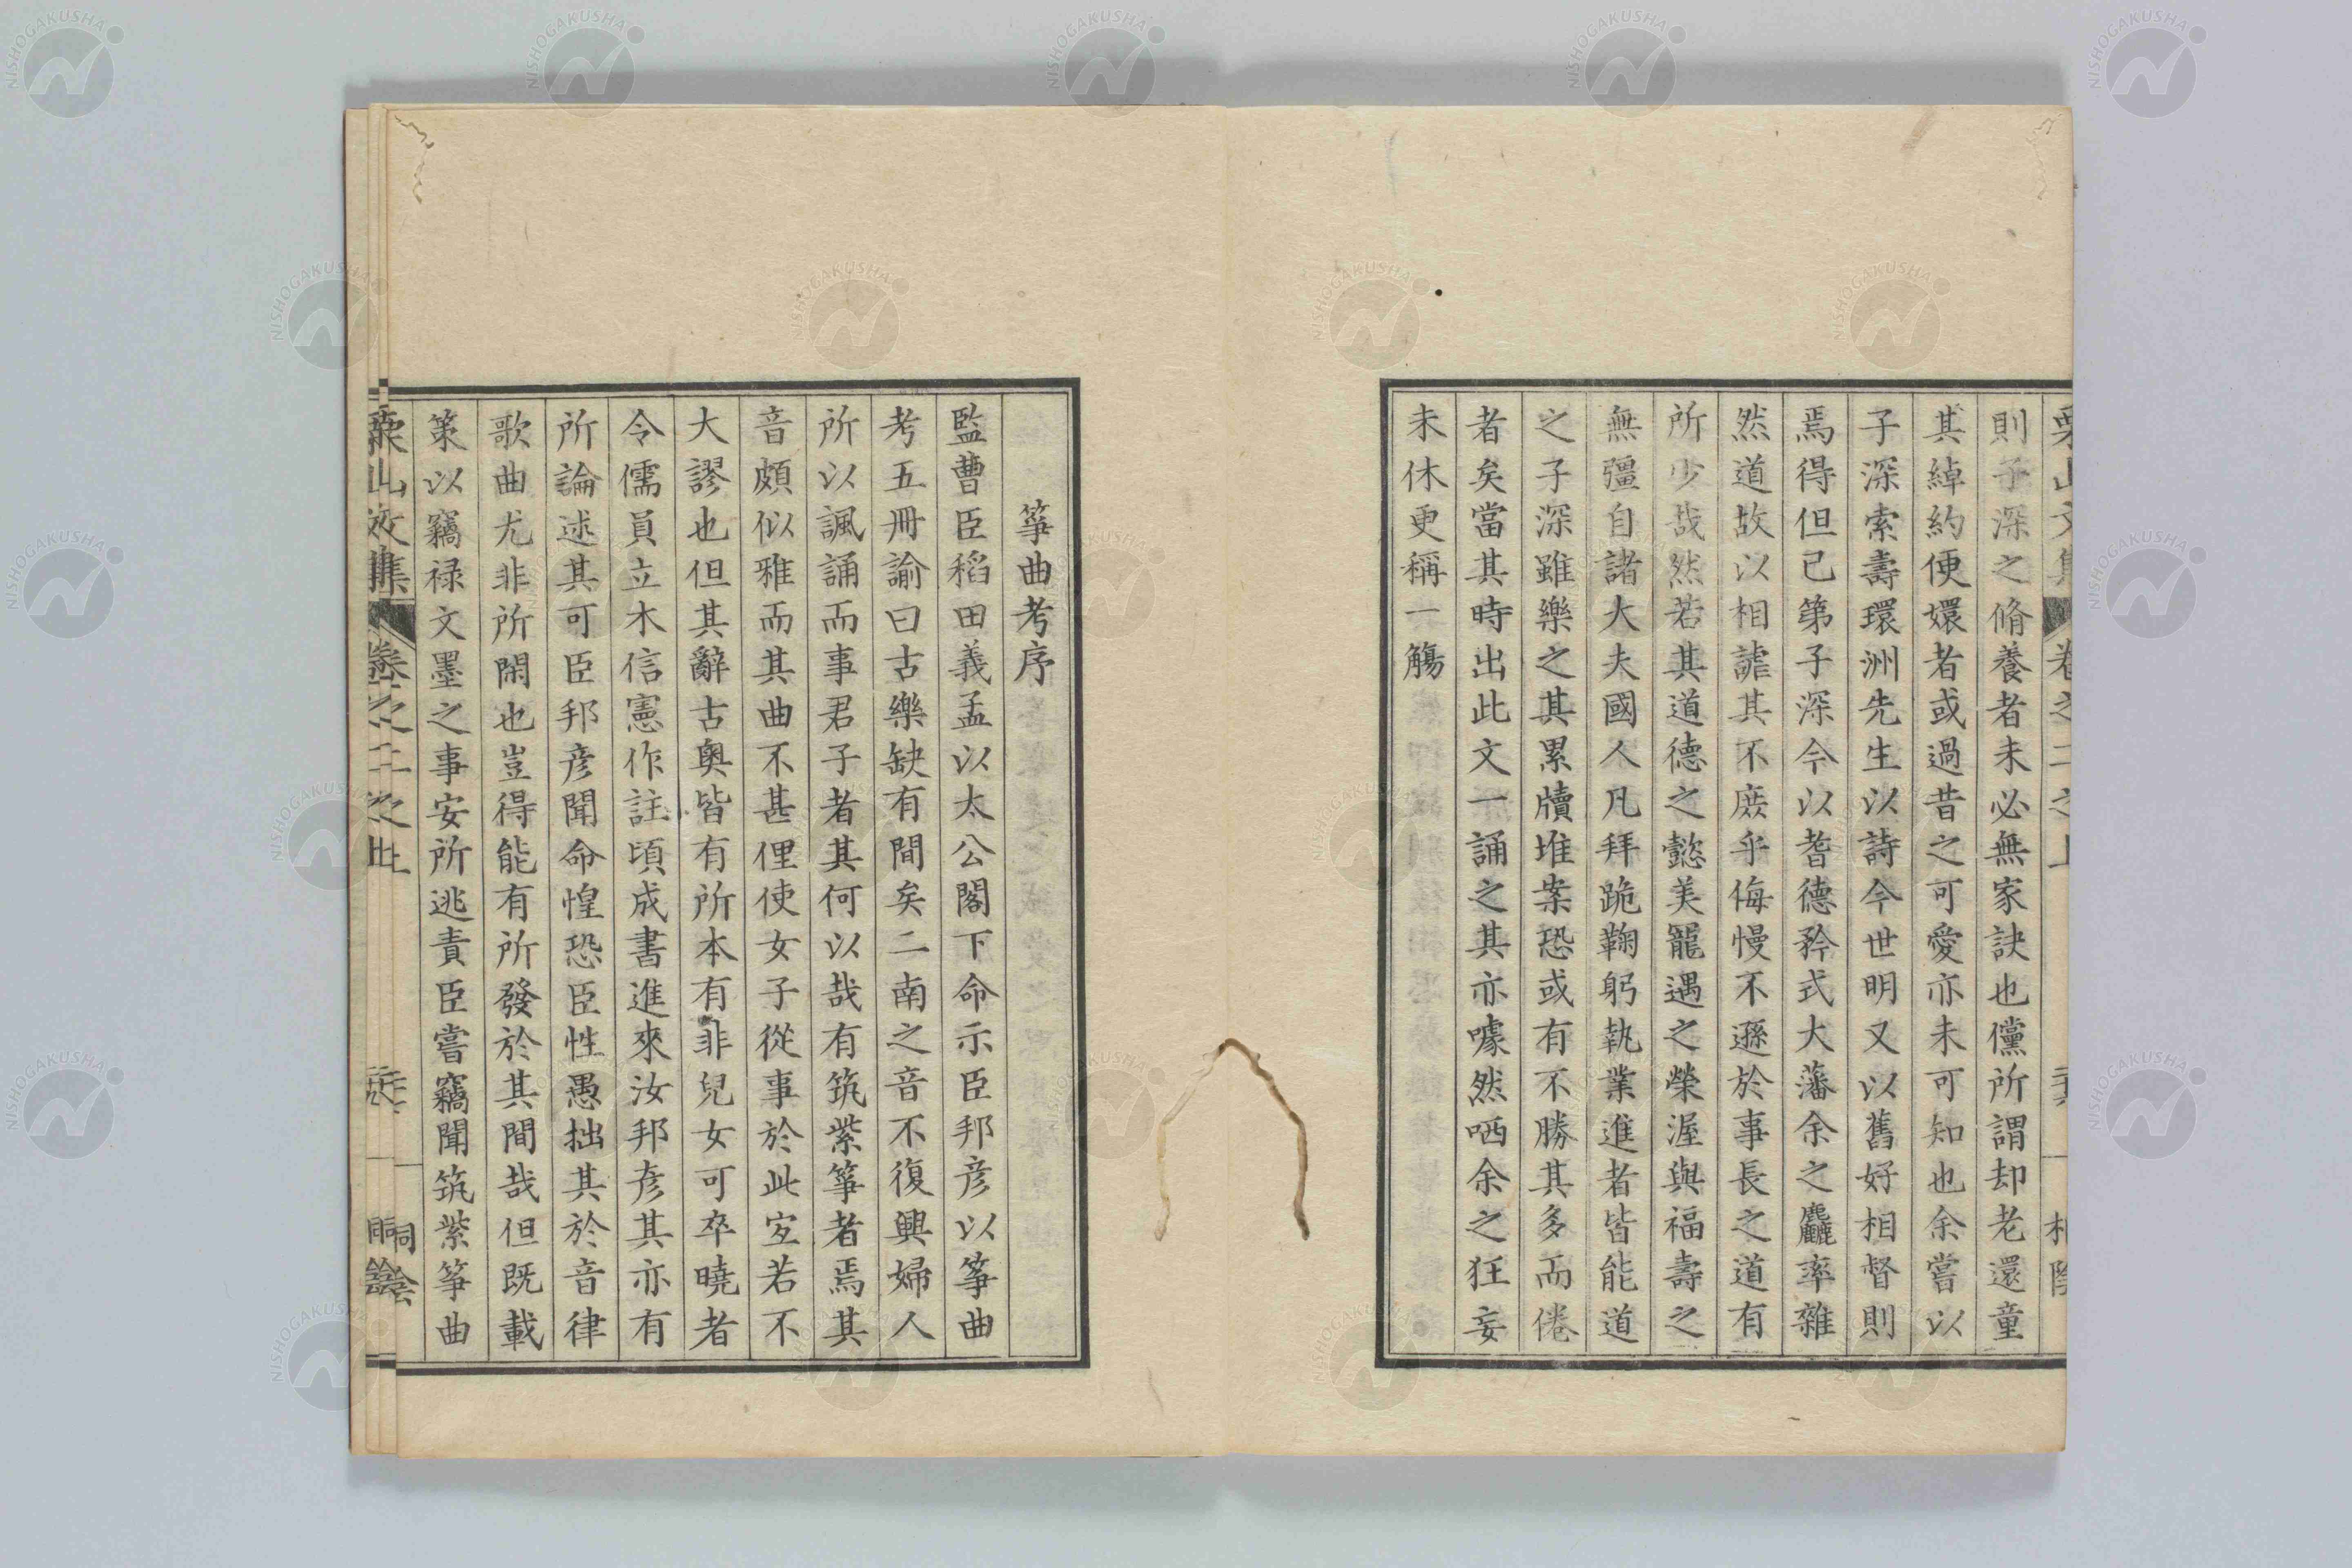 則子深之脩養者未必無家訣也儻所謂却老還童
其綽約便嬛者或過昔之可愛亦未可知也余嘗以
子深索壽環洲先生以詩今世明又以舊好相督則
焉得但已第子深今以耆德矜式大藩余之麤率雜
然道故以相謔其不庶乎侮慢不遜於事長之道有
所少哉然若其道德之懿美寵遇之榮渥與福壽之
無彊自諸大夫國人凡拜跪鞠躬執業進者皆能道
之子深雖樂之其累牘堆案恐或有不勝其多而倦
者矣當其時出此文一誦之其亦噱然哂余之狂妄
未休更稱一觴
箏曲考序
監曹臣稻田義孟以太公閤下命示臣邦彦以箏曲
考五冊諭曰古樂缺有間矣二南之音不復興婦人
所以諷誦而事君子者其何以哉有筑紫箏者焉其
音頗似雅而其曲不甚俚使女子從事於此宐若不
大謬也但其辭古奥皆有所本有非兒女可卒曉者
令儒員立木信憲作註頃成書進來汝邦彦其亦有
所論述其可臣邦彦聞命惶恐臣性愚拙其於音律
歌曲尤非所閑也豈得能有所發於其間哉但既載
策以竊禄文墨之事安所逃責臣嘗竊聞筑紫箏曲
栗山文集
NISHOGAKUSHA